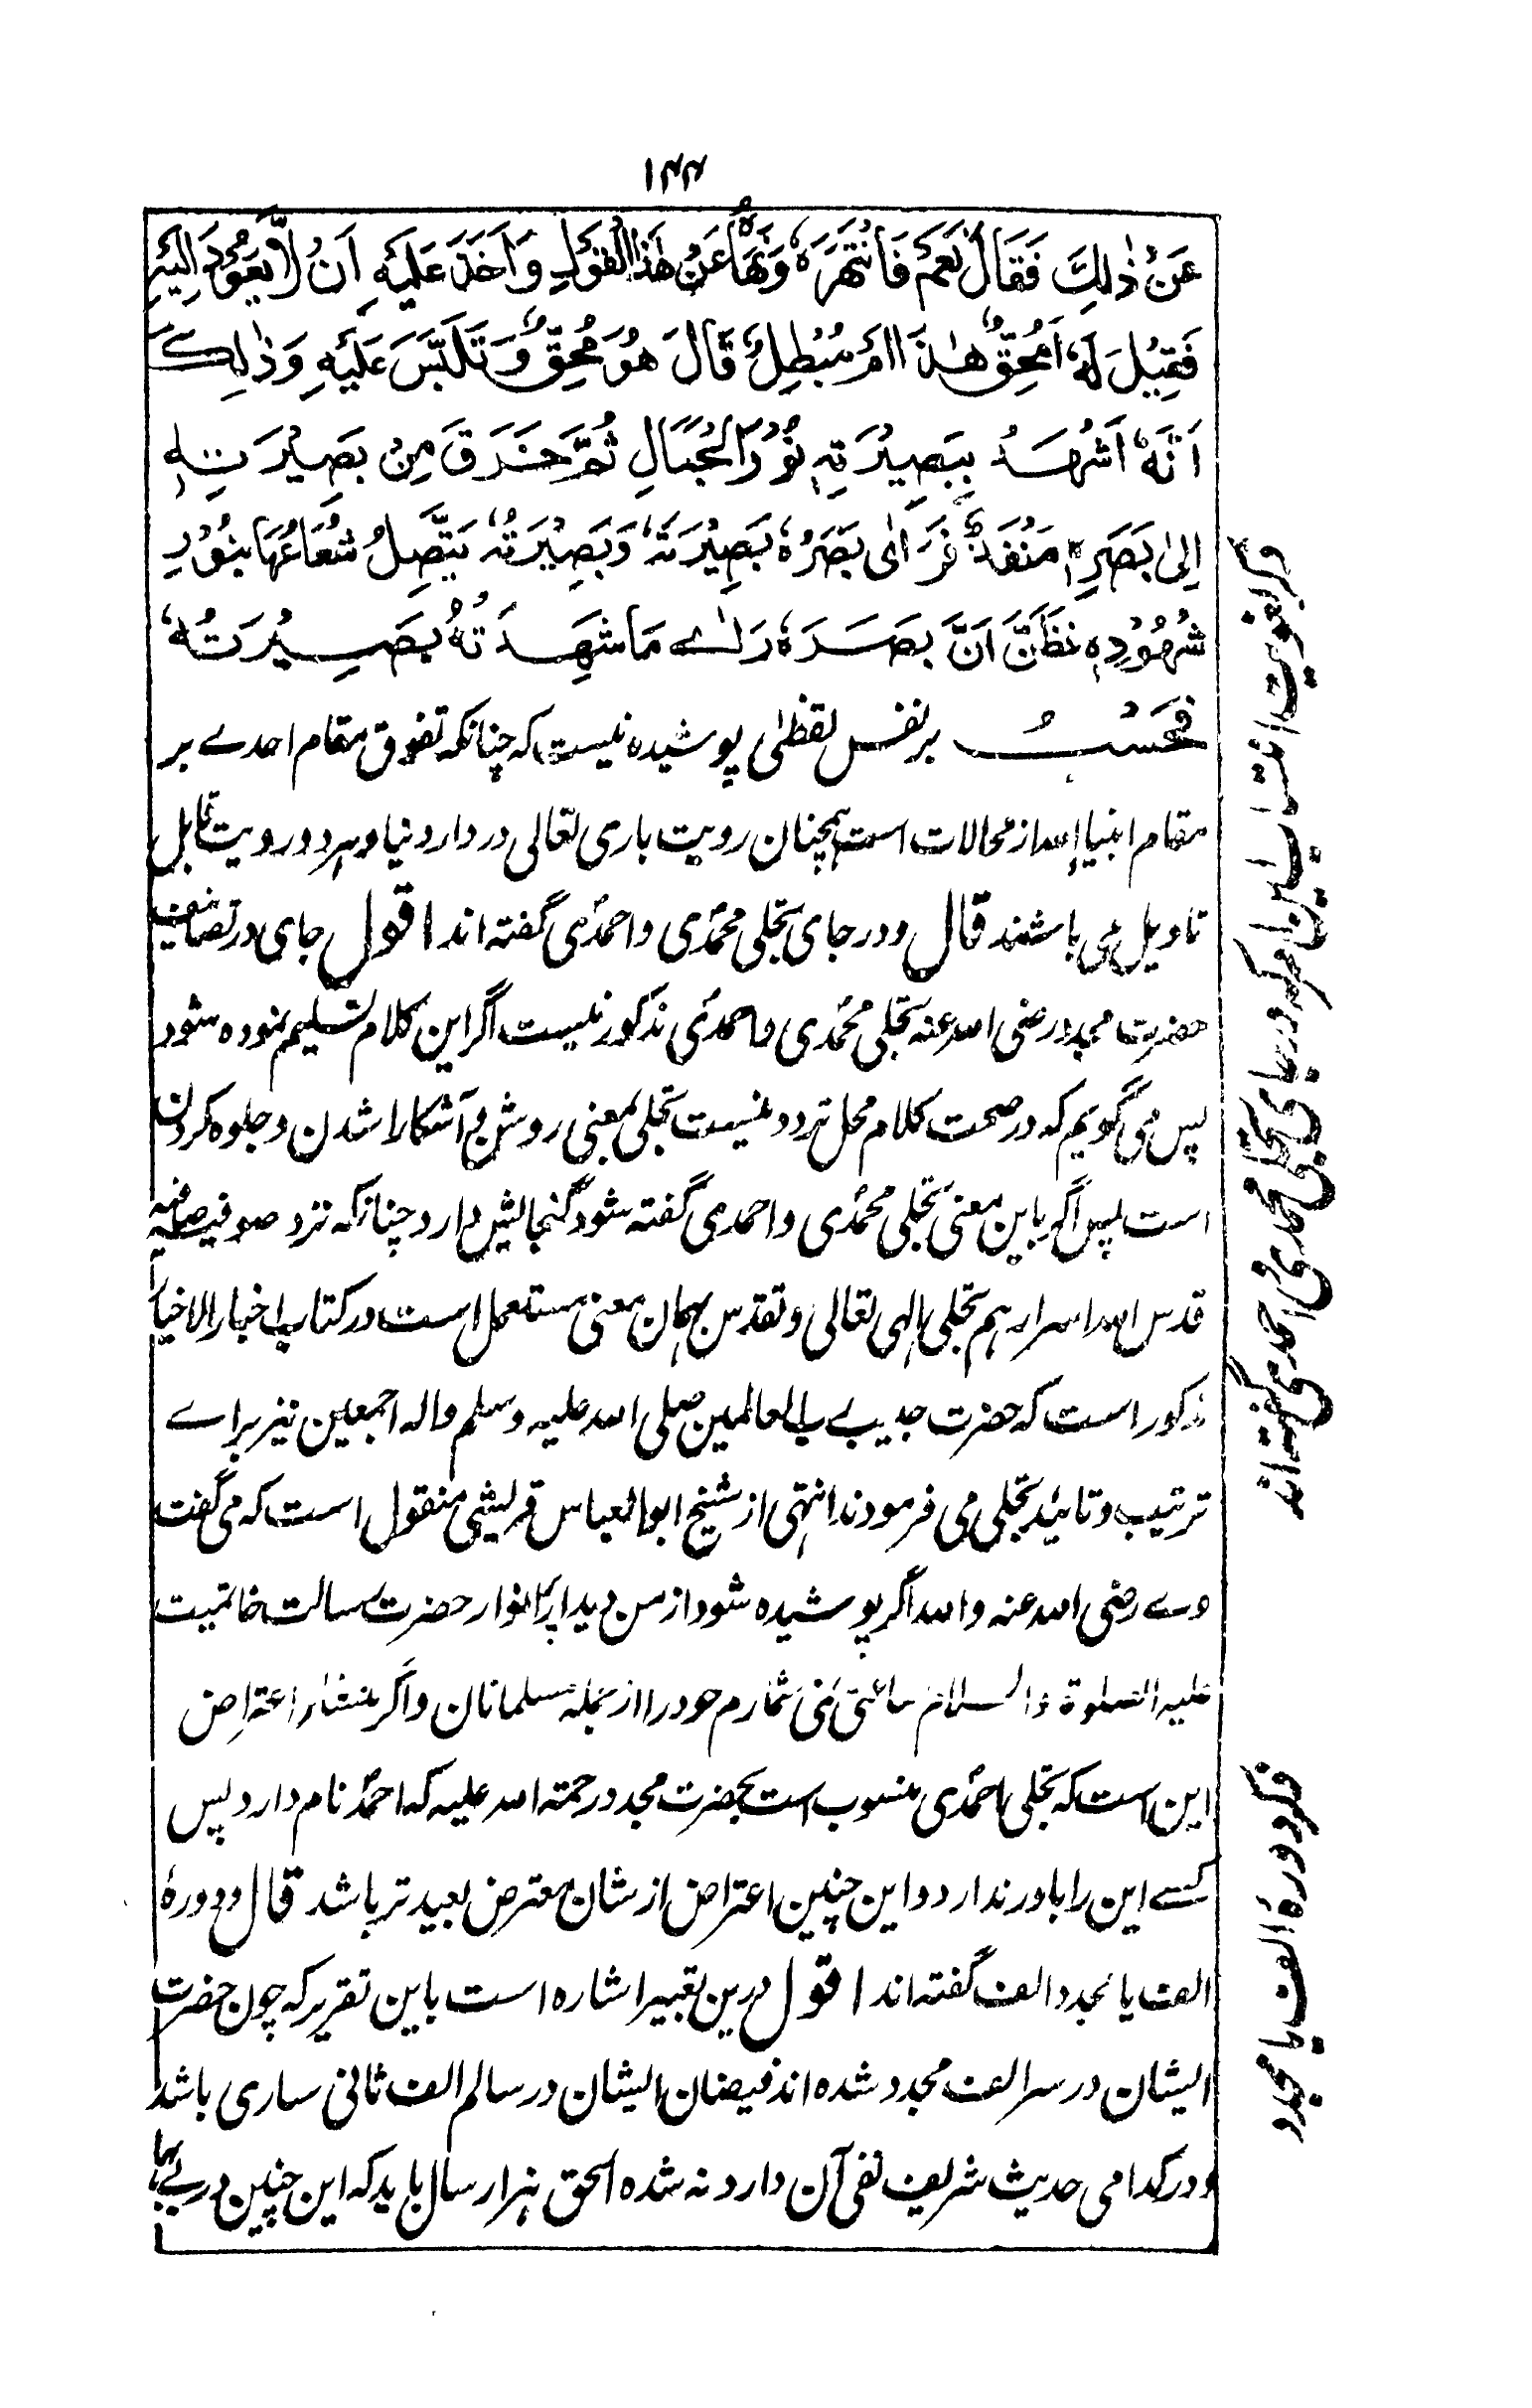 ۱۴۴
عَنْ ذٰلِكَ فَقَالَ نَعَمْ فَانْتَهَرَهٗ وَنَهَاهُ عَنْ هٰذَا الْقَوْلِ وَاَخَذَ عَلَيْهِ اَنْ لَّا يَعُوْدَ اِلَيْهِ
فَقِيْلَ لَهٗ اَمُحِقٌّ هٰذَا اَمْ مُبْطِلٌ قَالَ هُوَ مُحِقٌّ وَتَلَبَّسَ عَلَيْهِ وَذٰلِكَ
اَنَّهٗ اَشْهَدُ بِبَصِيْرَتِهٖ نُوْرَ الْجَمَالِ ثُمَّ خَرَقَ مِنْ بَصِيْرَتِهٖ
اِلٰى بَصَرِهٖ مَنْفَذٌ فَرَاٰى بَصَرُهٗ بَصِيْرَتَهٗ وَبَصِيْرَتُهٗ يَتَّصِلُ شُعَاعُهَا بِنُوْرِ
شُهُوْدِهٖ فَظَنَّ اَنَّ بَصَرَهٗ رَاٰے مَا شَهِدَتْهُ بَصِيْرَتُهٗ
فَحَسْبُ بر نفس یقظی پوشیده نیست که چنانکه تفوق مقام احدے بر
مقام انبیاء الله از محالات است همچنان رویت باری تعالی در دار دنیا و هر دو رویت قابل
تاویل می باشند قال و در جای تجلی محمدی و احمدی گفته اند اقول جای در تصانیف
حضرت مجدد رضی الله عنه تجلی محمدی و احمدی مذکور نیست اگر این کلام تسلیم نموده شود
پس می گویم که در صحت کلام محل تردد نیست تجلی بمعنی روشن و آشکارا شدن و جلوه کردن
است پس اگر باین معنی تجلی محمدی و احمدی گفته شود گنجایش دارد چنانکه نزد صوفیه صافیه
قدس الله اسرارهم تجلی الهی تعالی و تقدس بهمان معنی مستعمل است در کتاب اخبار الاخیار
مذکور است که حضرت حبیب رب العالمین صلی الله علیه وسلم و اله اجمعین نیز براے
ترتیب و تائید تجلی می فرمودند انتهی از شیخ ابو العباس قریشی منقول است که می گفت
وے رضی الله عنه والله اگر پوشیده شود از من دیدار پر انوار حضرت رسالت خاتمیت
علیه الصلوة والسلام ساعتی نمی شمارم خود را از جمله مسلمانان و اگر منشاء اعتراض
این است که تجلی احمدی منسوب است بحضرت مجدد رحمته الله علیه که احمد نام دارد پس
کسے این را باور ندارد و این چنین اعتراض از شان معترض بعید تر باشد قال و دورۀ
الف یا مجدد الف گفته اند اقول درین تعبیر اشاره است باین تقریر که چون حضرت
ایشان در سر الف مجدد شده اند فیضان ایشان در سالم الف ثانی ساری باشد
و در کدامی حدیث شریف نفی آن دارد نه شده الحق هزار سال باید که این چنین در بے بها
ذکر تفویت انتساب این امر که در جای تجلی محمدی و احمدی گفته اند
ذکر دورۀ الف یا مجدد